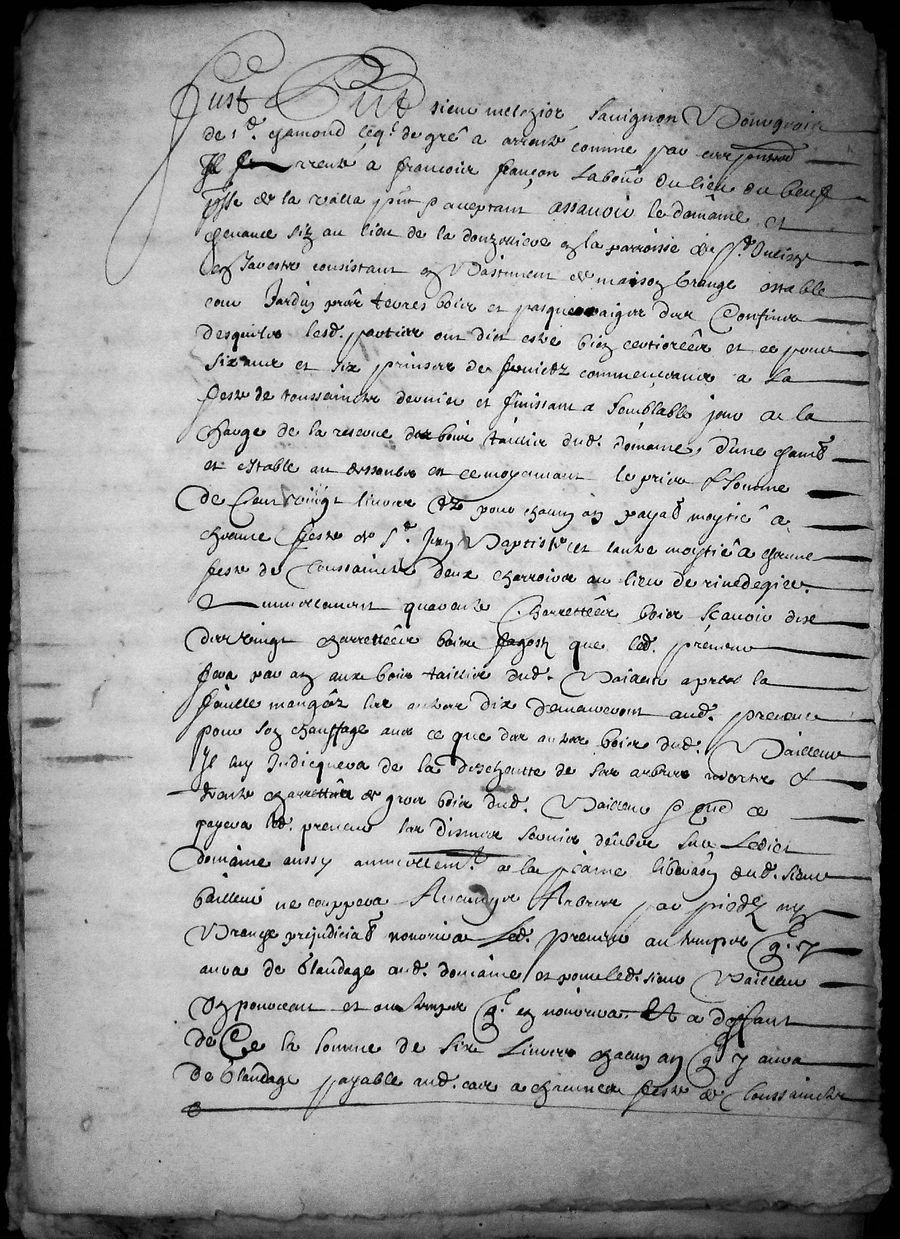 Just Put sieur melchior Savignon Bourgeois
de St. Chamond leql. de gré a arranté comme par ces
rante à françois françon Labour du lieu du
de la valla pnt acceptant assavoir le domaine et
grange siz au lieu de la en la parroisse de St.
en Jarestz consistant en Bastiment de maison grange estable
cour Jardin prés terres bois et pasqueraiges des Confins
desquelz lesd. parties ont dict estre bien certiorées et ce pour
six ans et six prinses de fruictz commençans a la
feste de toussainctz dernier et finissant a semblable jour a la
charge de la reserve des bois taillis dud. domaine, d'une chambre
et estable au dessoubz et ce moyennant le prix & somme
de Cent vingt livres pour chacun an payable moytié a
chacune feste de St. Jean Baptiste et lautre moytié a chacune
feste de Toussainctz deux charrois au lieu de rivedegier
annuellement quarante Charrettées bois scavoir
vingt charrettées bois fagotz que led. preneur
fera par an aux bois taillis dud. Bailleur apres la
feuille mangée les autres dix demeureront aud. preneur
pour son chauffage avec ce que des autres bois dud. Bailleur
Il luy Indicquera de la descheutte de ses arbres mortz &
charrettées de gros bois dud. Bailleur
payera led. preneur les disme servis deubz sur Ledict
domaine aussy annuellemt. a la pleine liberation dud. sieur
bailleur ne couppera Aucungs Arbres par pied ny
Branche prejudiciable nourrira Led. preneur au temps ql. y
aura de Glandage aud. domaine et pour led. sieur Bailleur
Un pourceau et au temps ql. en nourrira Et a deffaut
de Ce la somme de six Livres chacun an ql. y aura
de Glandage payable aud. cas a chacune feste de Toussainctz